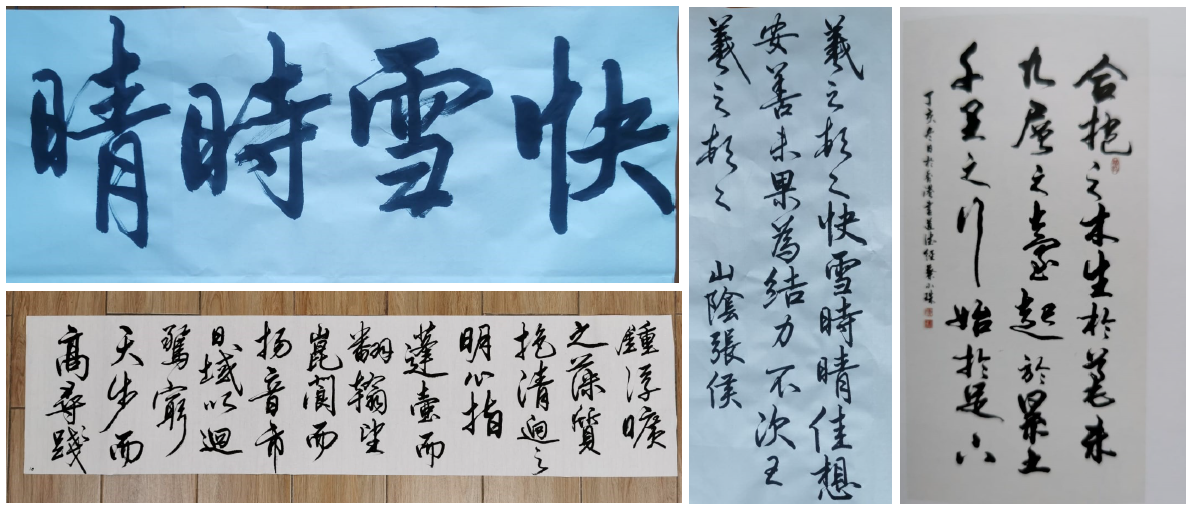 快雪時晴
鍾浮曠
之藻質
抱清迥之
明心指
蓬壺而
翻翰望
崑閬而
揚音帀
日域以迴
鶩窮
天步而
高尋踐
羲之頓首快雪時晴佳想
安善未果為結力不次王
羲之頓首 山陰張侯
合抱之木生於毫末
九層之臺起於累土
千里之行始於足下
丁亥春日於香港書道德經